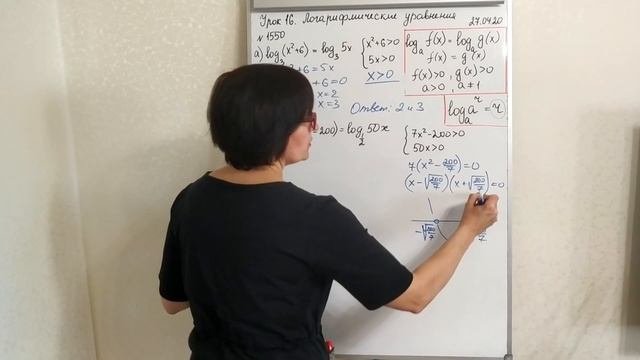 Урок 16. Логарифмические уравнения 27.04.20
№ 1550
а) log₃(x²+6) = log₃ 5x
x²+6>0
5x>0
x²+6 = 5x
+6=0
x>0
x=2
x=3
Ответ: 2 и 3
logₐ f(x) = logₐ g(x)
f(x) = g(x)
f(x)>0, g(x)>0
a>0, a≠1
logₐ aʳ = r
200) = log 50x
7x²-200>0
50x>0
7(x² - 200/7) = 0
(x - √200/7)(x + √200/7) = 0
-√200/7
7